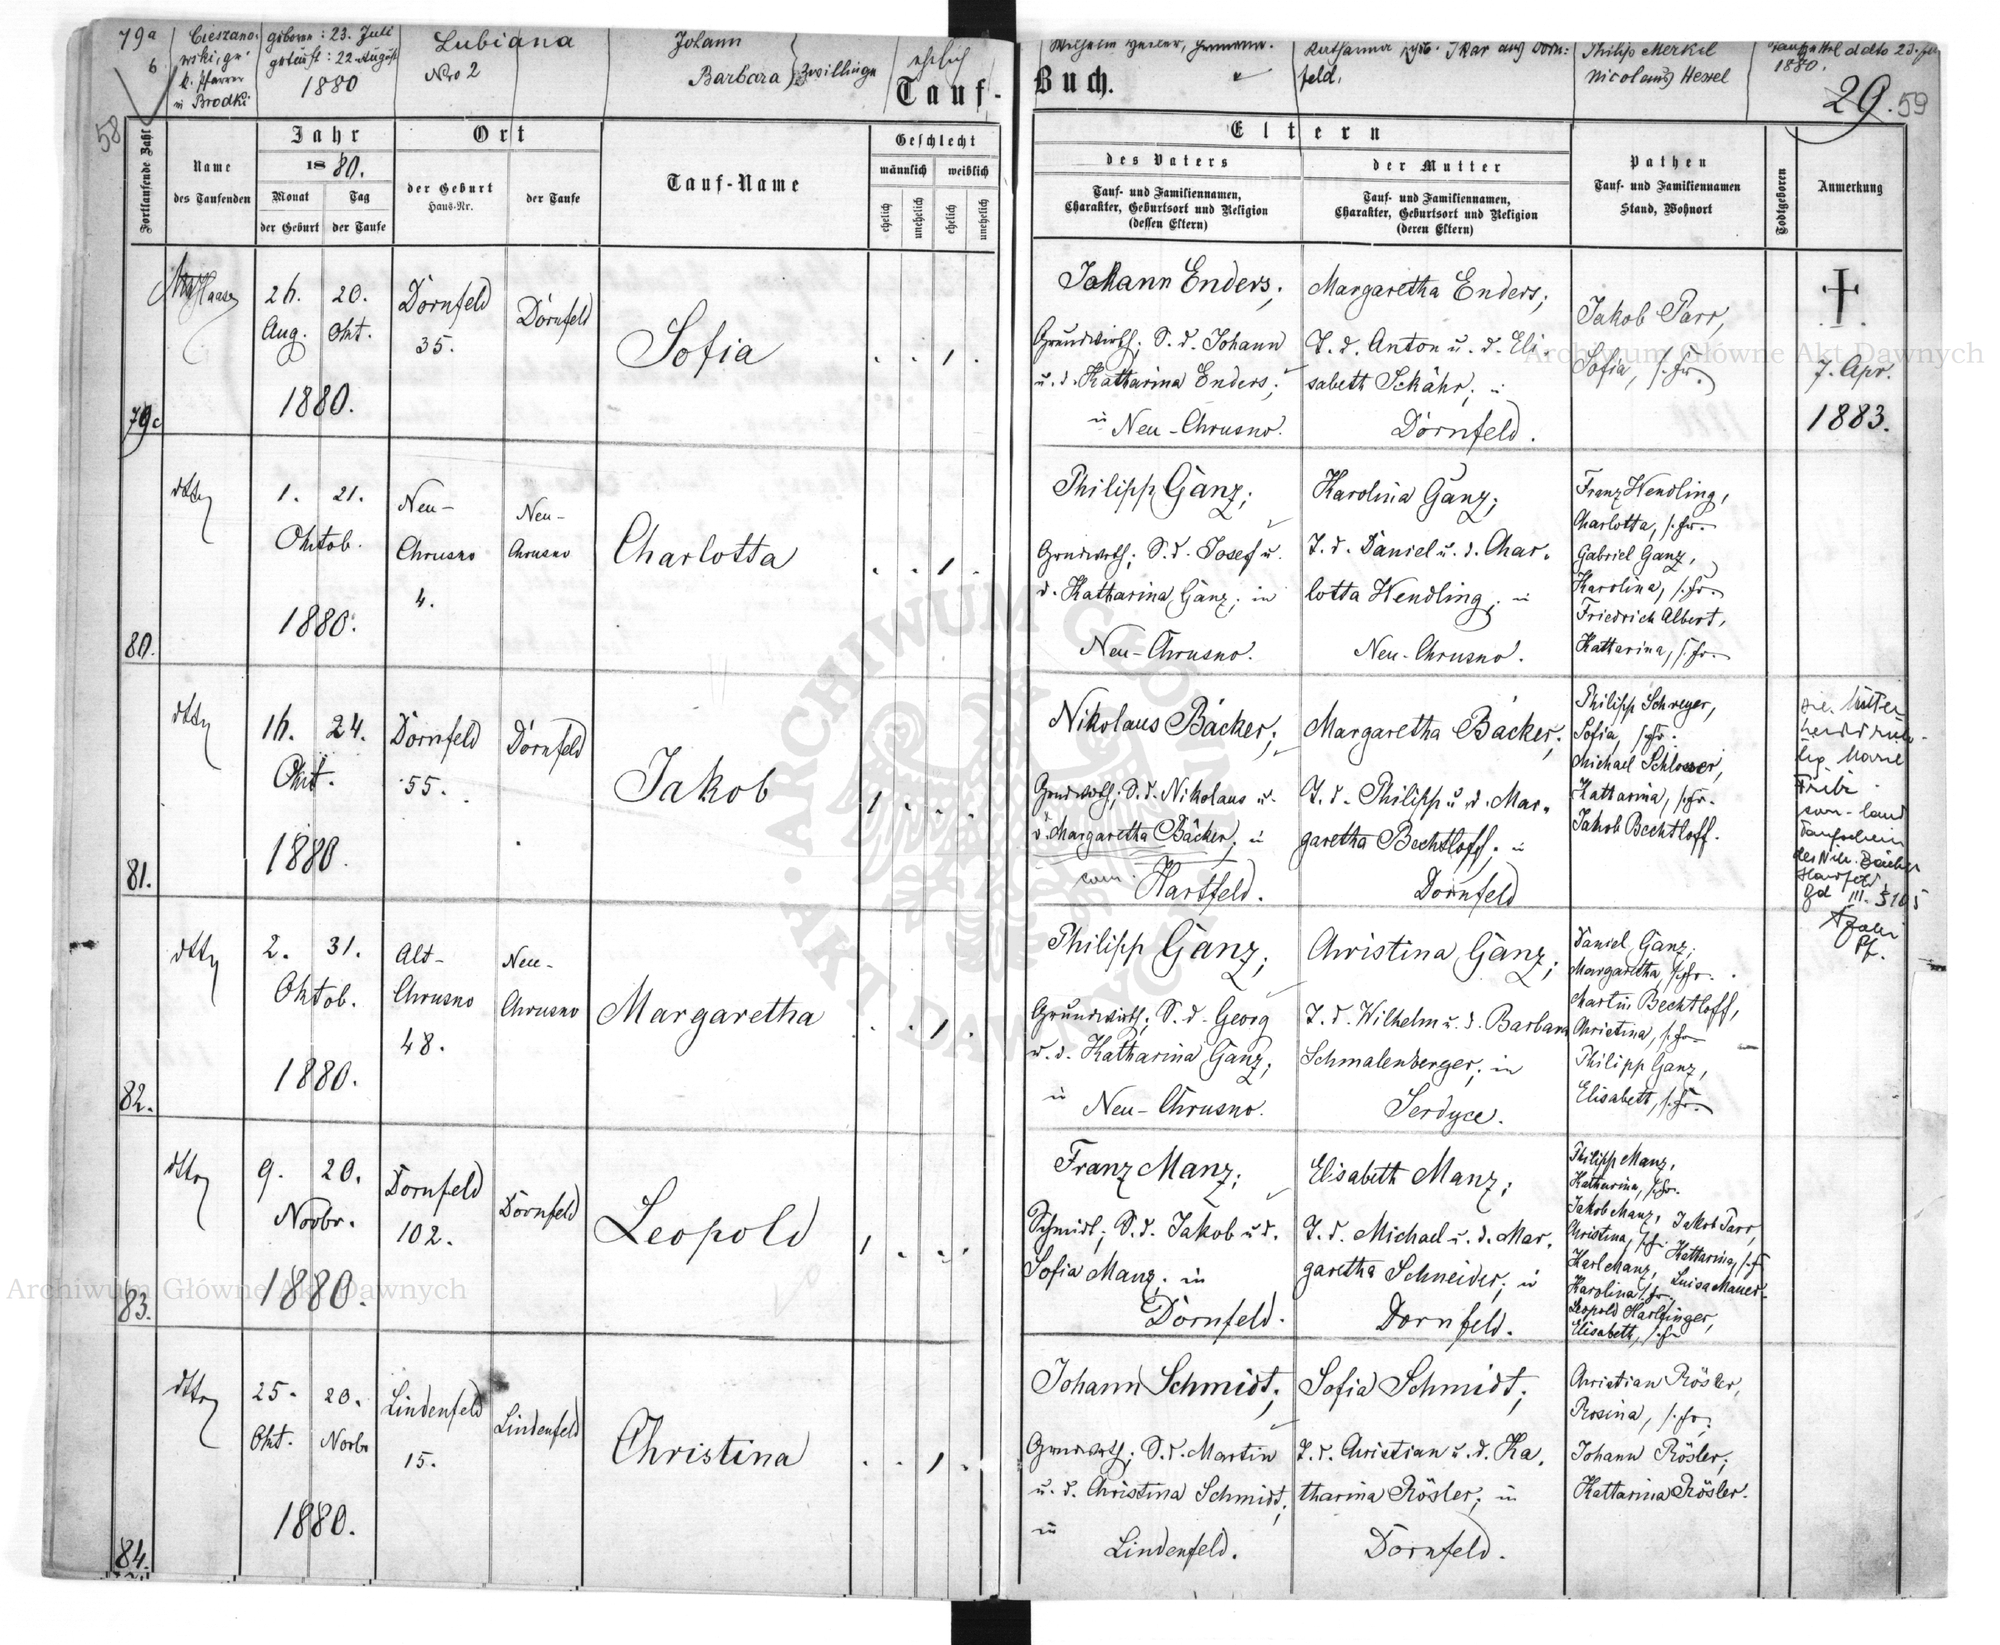 79a
b
Cieszano-
wski, gr.
k. Pfarrer
in Brodki
geboren: 23. Juli
getauft: 22. August
1880
Lubiana
Nro 2
Johann
Barbara } Zwillinge
ehelich
Tauf-
58
Fortlaufende Zahl
Name
des Taufenden
Jahr
1880.
Monat
Tag
der Geburt
der Taufe
Ort
der Geburt
Haus-Nr.
der Taufe
Tauf-Name
Geschlecht
männlich
weiblich
ehelich
unehelich
ehelich
unehelich
Haase
26. 20.
Aug. Okt.
1880.
Dornfeld
35.
Dornfeld
Sofia
. . 1 .
79c
dtto
1. 21.
Oktob.
1880.
Neu-
Chrusno
4.
Neu-
Chrusno
Charlotta
. . 1 .
80.
dtto
16. 24.
Okt.
1880.
Dornfeld
55.
Dornfeld
Jakob
1 . . .
81.
dtto
2. 31.
Oktob.
1880.
Alt-
Chrusno
48.
Neu-
Chrusno
Margaretha
. . 1 .
82.
dtto
9. 20.
Novbr.
1880.
Dornfeld
102.
Dornfeld
Leopold
1 . . .
83.
dtto
25. 20.
Okt. Novbr
1880.
Lindenfeld
15.
Lindenfeld
Christina
. . 1 .
84.
Buch.
Katharina
feld.
Philipp Merkel
Nicolaus Hexel
1880.
29.
59
Eltern
des Vaters
Tauf- und Familiennamen,
Charakter, Geburtsort und Religion
(dessen Eltern)
der Mutter
Tauf- und Familiennamen,
Charakter, Geburtsort und Religion
(deren Eltern)
Pathen
Tauf- und Familiennamen
Stand, Wohnort
Todtgeboren
Anmerkung
Johann Enders;
Grundwirth; S. d. Johann
u. d. Katharina Enders;
in Neu-Chrusno.
Margaretha Enders;
T. d. Anton u. d. Eli-
sabeth Sckähr; in
Dornfeld.
Jakob Parr,
Sofia, s. Fr.
7. Apr.
1883.
Philipp Ganz;
Grndwrth; S. d. Josef u.
d. Katharina Ganz; in
Neu-Chrusno.
Karolina Ganz;
T. d. Daniel u. d. Char-
lotta Hendling; in
Neu-Chrusno.
Franz Hendling,
Charlotta, s. Fr.
Gabriel Ganz,
Karolina, s. Fr.
Friedrich Albert,
Kattarina, s. Fr.
Nikolaus Bäcker;
Grndwrth; S. d. Nikolaus u.
d. Margaretha Bäcker; in
Hartfeld.
Margaretha Bäcker;
T. d. Philipp u. d. Mar-
garetha Bechtloff; in
Dornfeld
Philipp Schreyer,
Sofia, s. Fr.
Michael Schlosser,
Kattarina, s. Fr.
Jakob Bechtloff.
Taufschein
des Nik. Bäcker
Hartfeld
Philipp Ganz;
Grundwirth; S. d. Georg
u. d. Katharina Ganz;
in Neu-Chrusno.
Christina Ganz;
T. d. Wilhelm u. d. Barbara
Schmalenberger; in
Serdyce.
Daniel Ganz;
Margaretha, s. Fr.
Martin Bechtloff,
Christina, s. Fr.
Philipp Ganz,
Elisabeth, s. Fr.
Franz Manz;
Schmidt; S. d. Jakob u. d.
Sofia Manz; in
Dornfeld.
Elisabeth Manz;
T. d. Michael u. d. Mar-
garetha Schneider; in
Dornfeld.
Philipp Manz,
Katharina, s. Fr.
Jakob Manz, Jakob Parr,
Christina, s. Fr. Kattarina, s. F
Karl Manz, Luisa Mauer.
Karolina s. Fr.
Leopold Harlfinger,
Elisabeth, s. Fr
Johann Schmidt;
Grndwrth; S. d. Martin
u. d. Christina Schmidt;
in
Lindenfeld.
Sofia Schmidt;
T. d. Christian u. d. Ka-
tharina Rösler; in
Dornfeld.
Christian Rösler,
Rosina, s. Fr.;
Johann Rösler;
Kattarina Rösler.
Archiwum Główne Akt Dawnych
Archiwum Główne Akt Dawnych
ARCHIWUM GŁÓWNE AKT DAWNYCH